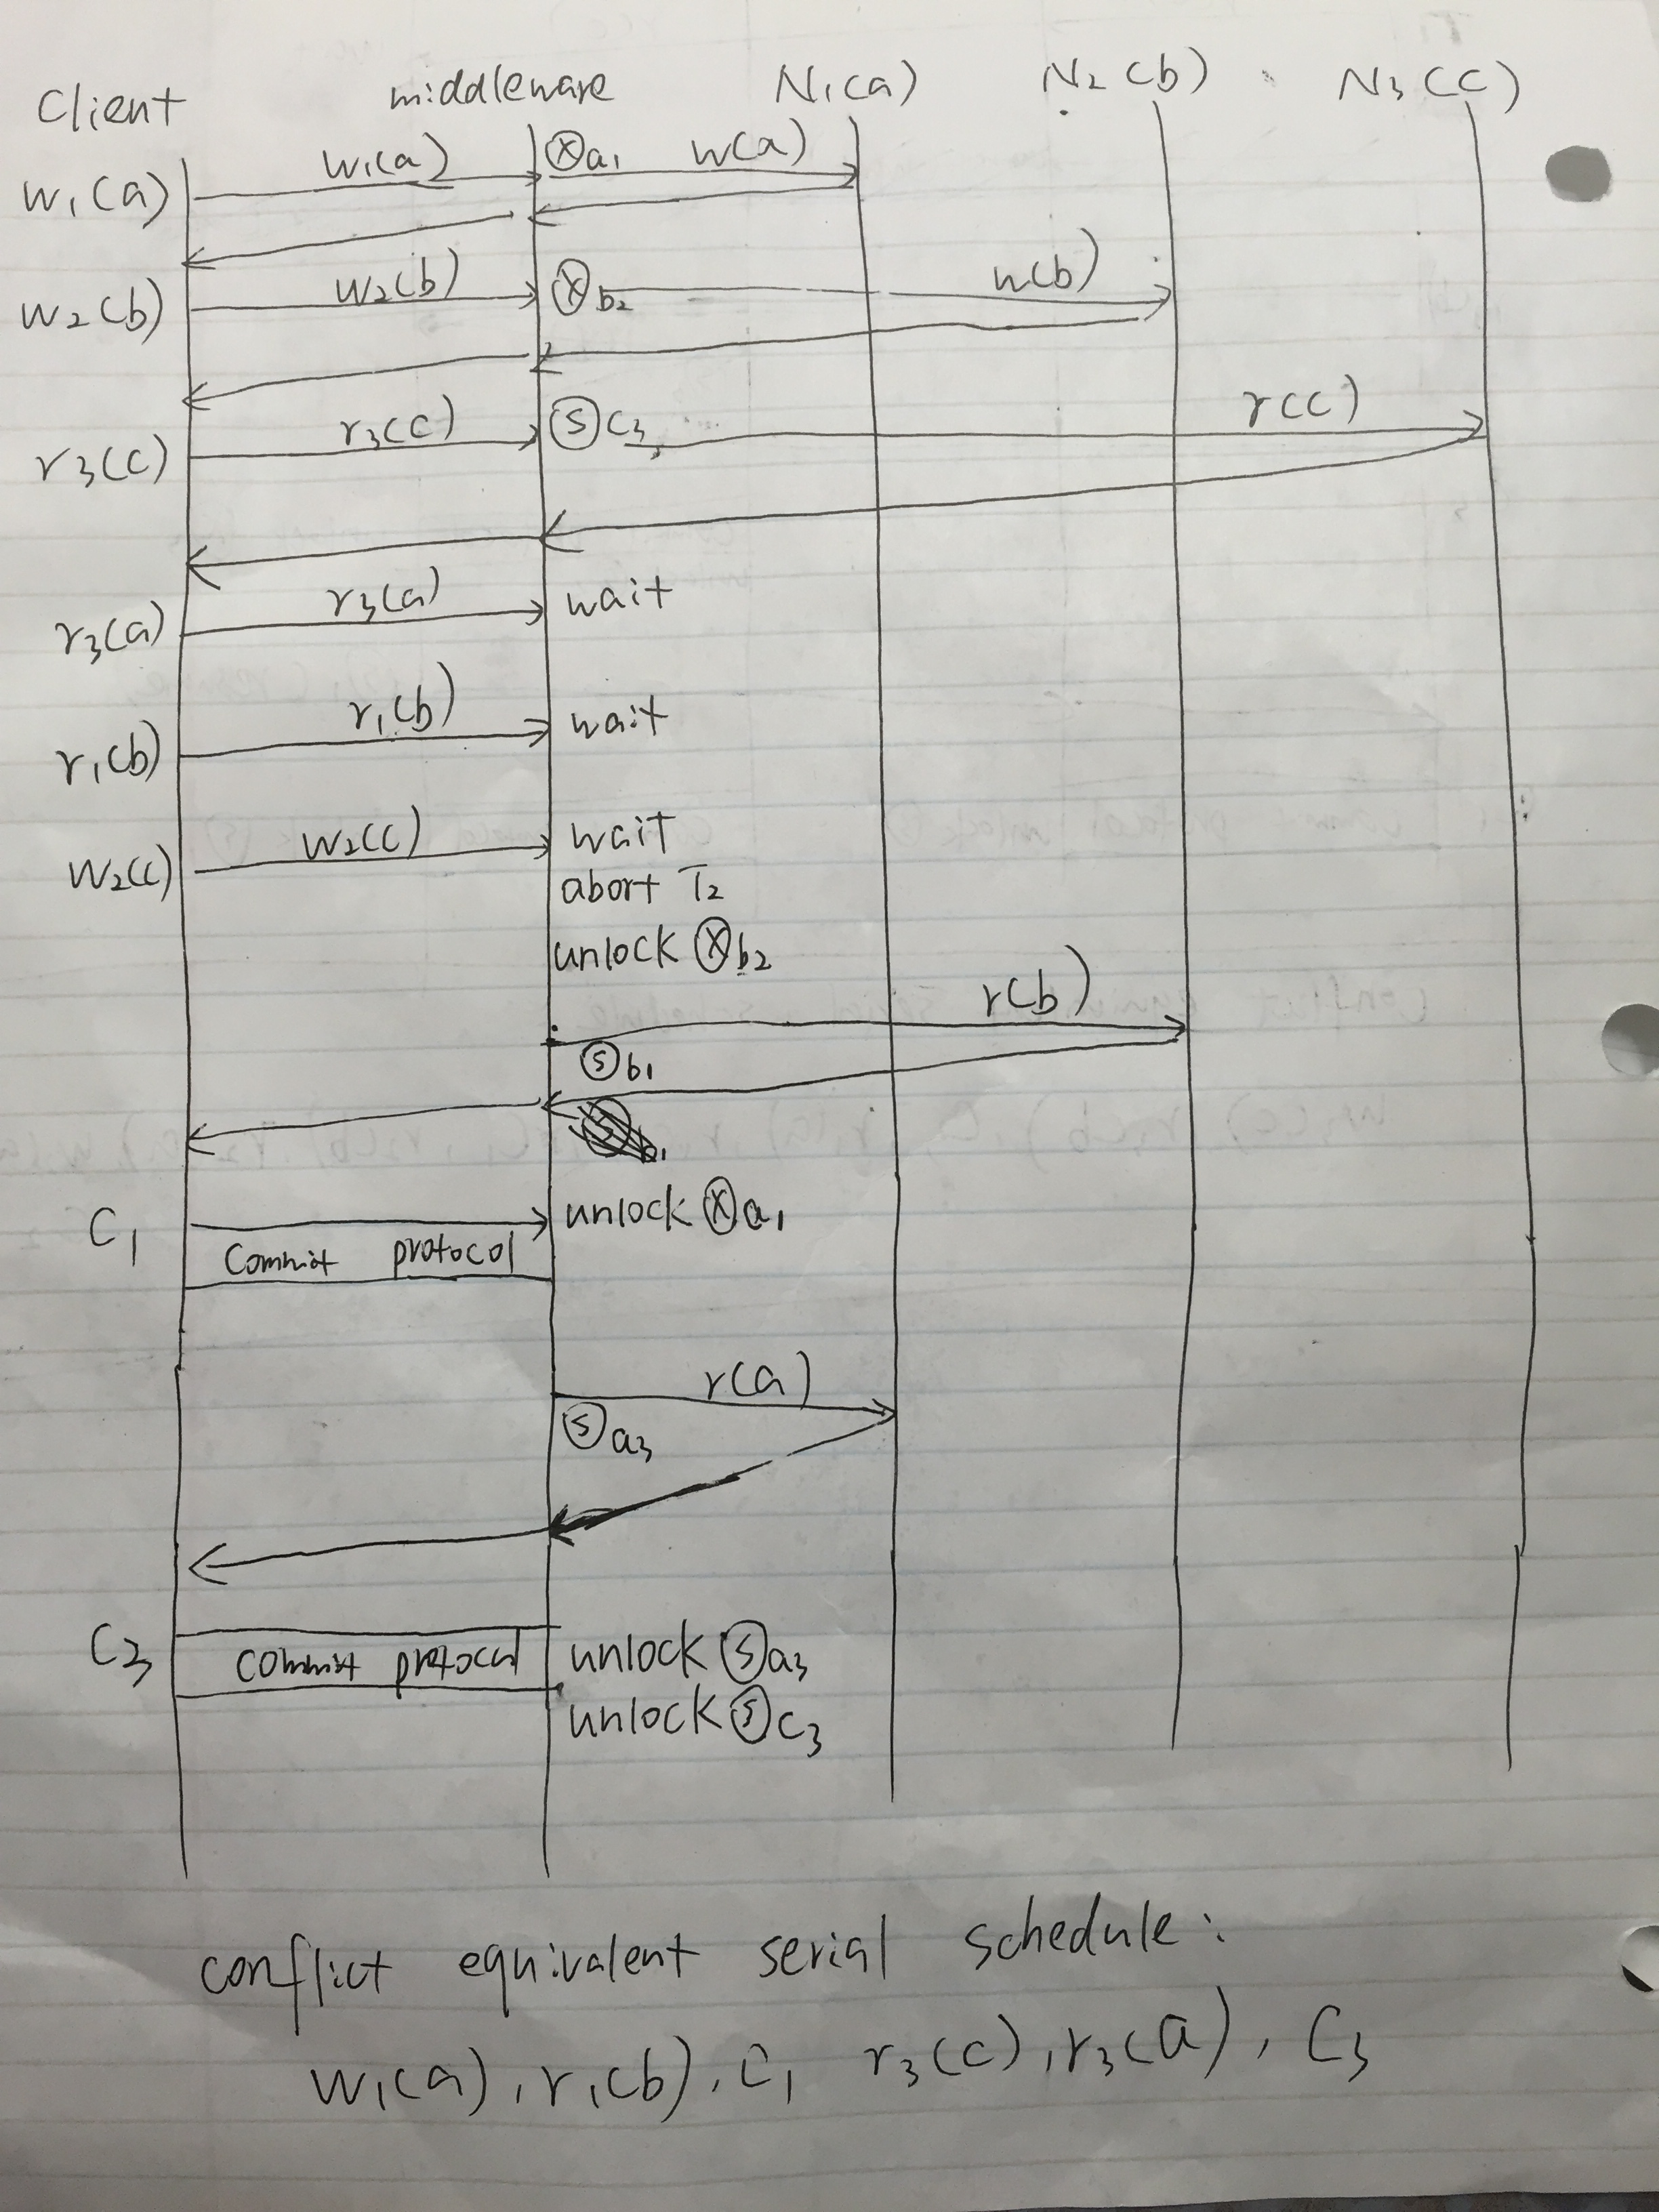 Client middleware N₁(a) N₂(b) N₃(c)
w₁(a) w₁(a) Ⓧa₁ w(a)
w₂(b) w₂(b) Ⓧb₂ w(b)
r₃(c) r₃(c) Ⓢc₃ r(c)
r₃(a) r₃(a) wait
r₁(b) r₁(b) wait
w₂(c) w₂(c) wait
abort T₂
unlock Ⓧb₂
Ⓢb₁ r(b)
C₁ unlock Ⓧa₁
Commit protocol
Ⓢa₃ r(a)
C₃ commit protocol unlock Ⓢa₃
unlock Ⓢc₃
conflict equivalent serial schedule:
w₁(a), r₁(b), C₁ r₃(c), r₃(a), C₃